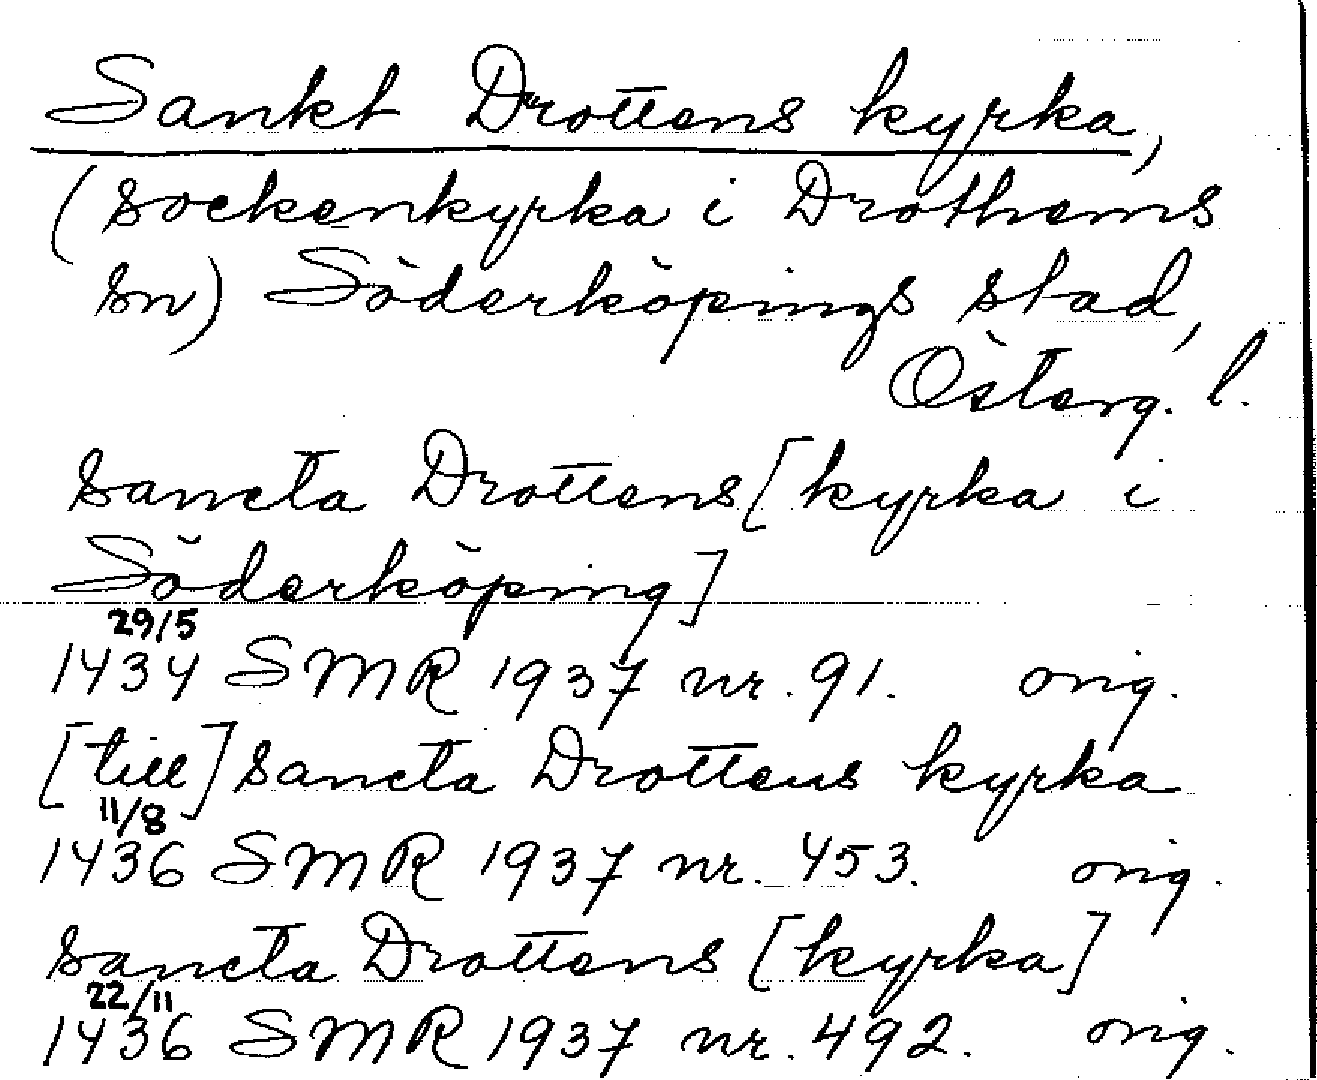 Sankt Drottens kyrka,
(sockenkyrka i Drothems
sn) Söderköpings stad,
Österg. l.
sancta Drottens [kyrka i
Söderköping]
29/5
1434 SMR 1937 nr. 91. orig.
[till] sancta Drotteus kyrka
11/8
1436 SMR 1937 nr. 453. orig.
sancta Drottens [kyrka]
22/11
1436 SMR 1937 nr. 492. orig.